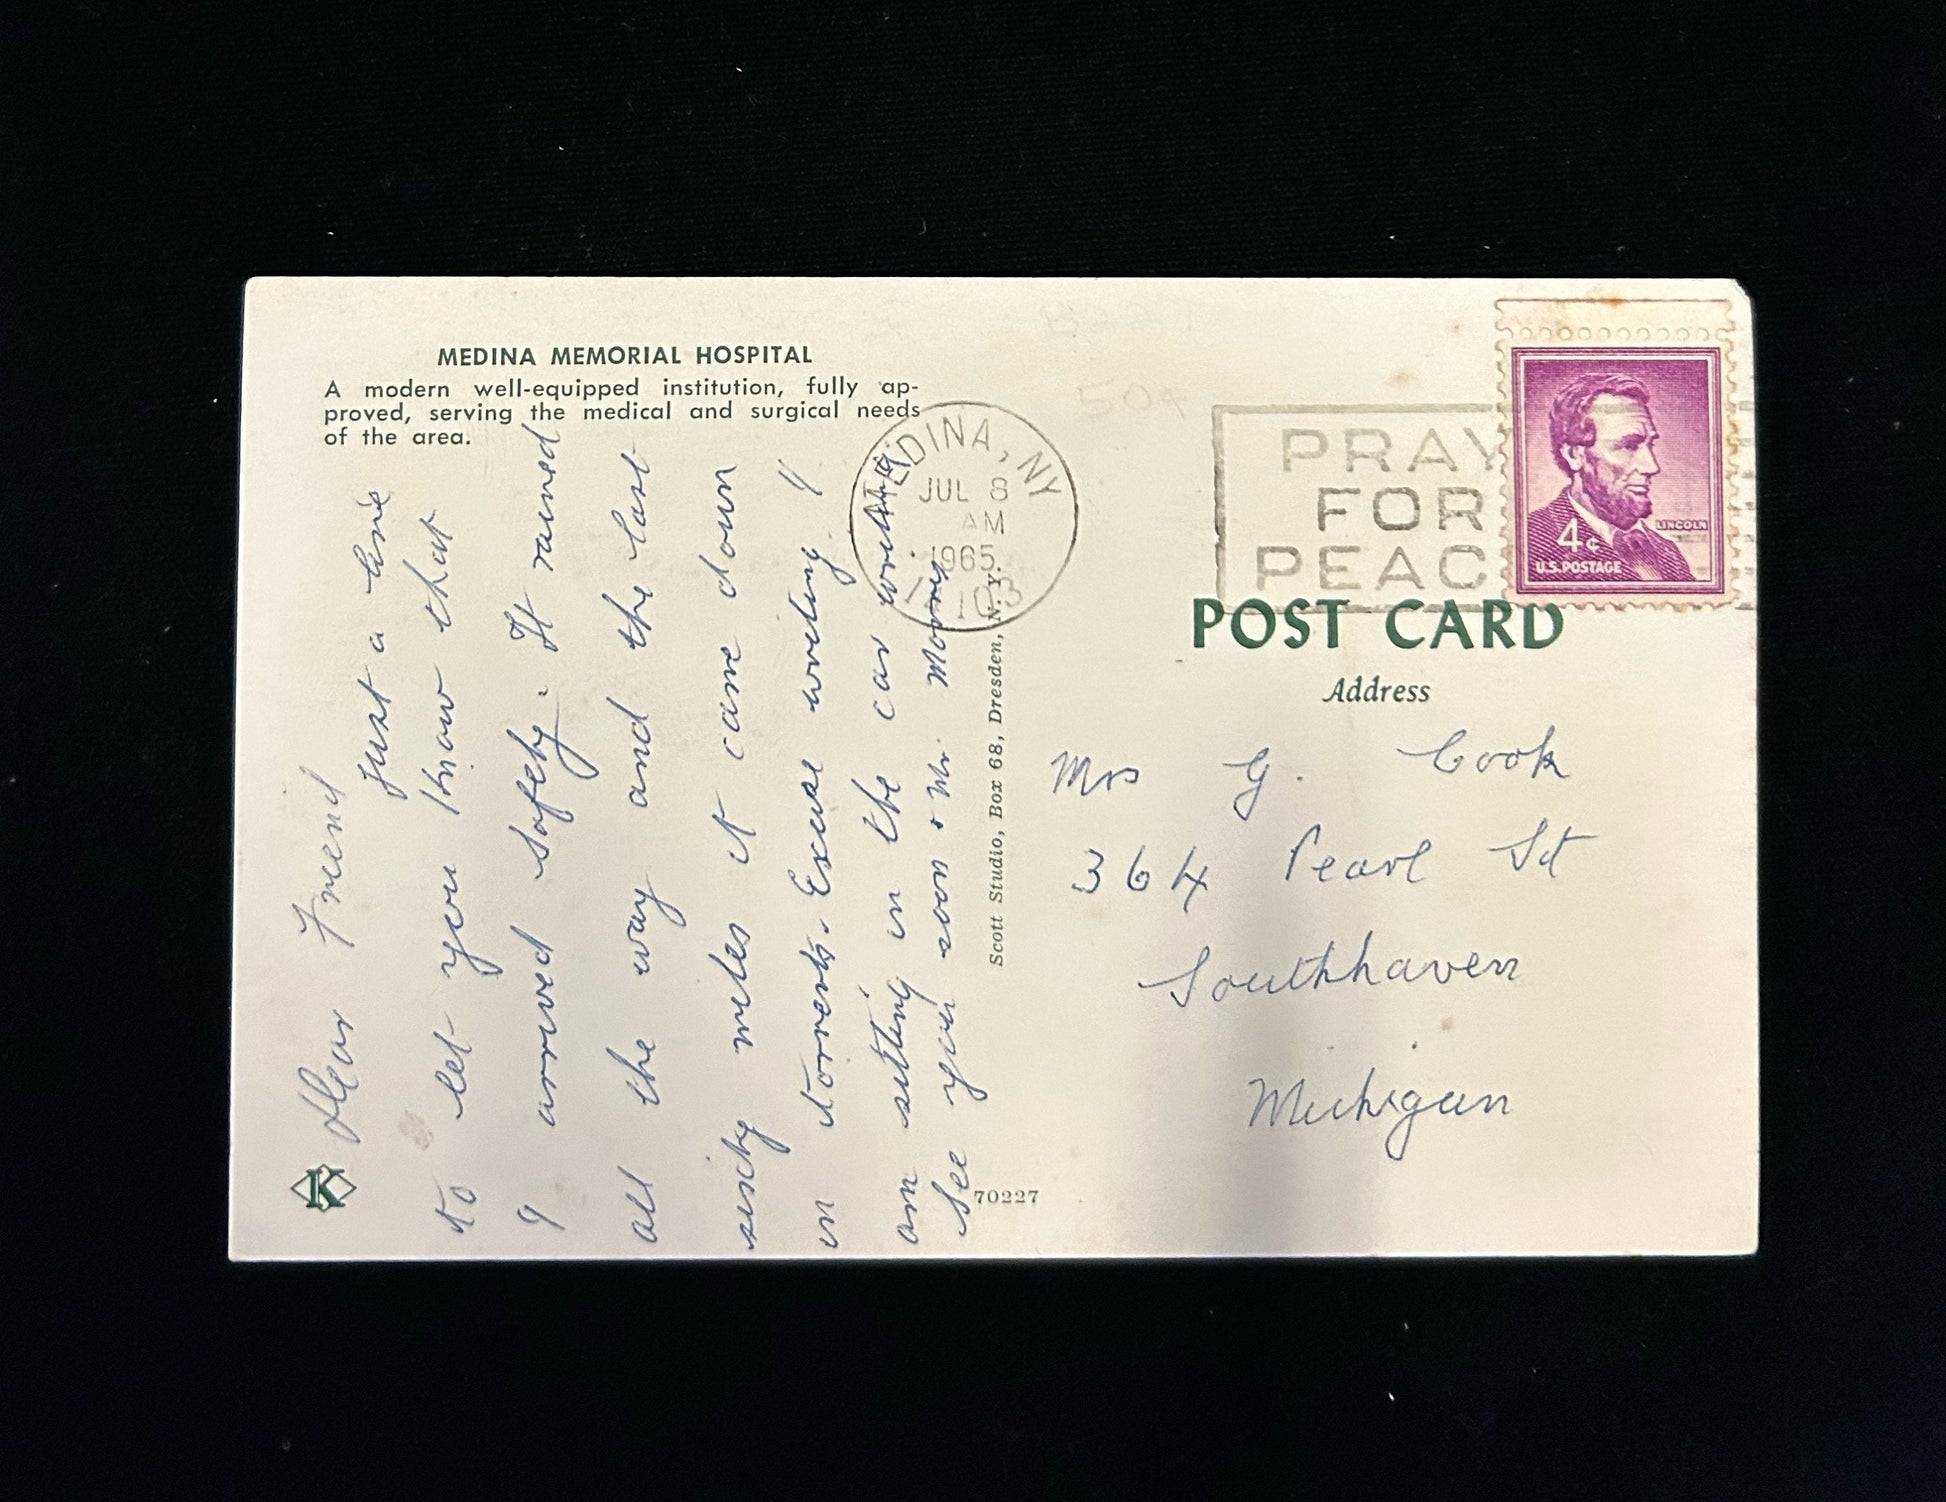 MEDINA MEMORIAL HOSPITAL
A modern well-equipped institution, fully ap-
proved, serving the medical and surgical needs
of the area.
Dear Friend
just a line
to let you know that
I arrived safely. It rained
all the way and the last
sixty miles it came down
in torrents. Excuse writing I
am sitting in the car
See you soon Mr. Morris
K
Scott Studio, Box 68, Dresden, N. Y.
70227
MEDINA, NY
JUL 8
AM
1965
PRAY
FOR
PEAC
LINCOLN
4¢
U.S. POSTAGE
POST CARD
Address
Mrs G. Cook
364 Pearl St
Southhaven
Michigan
50¢